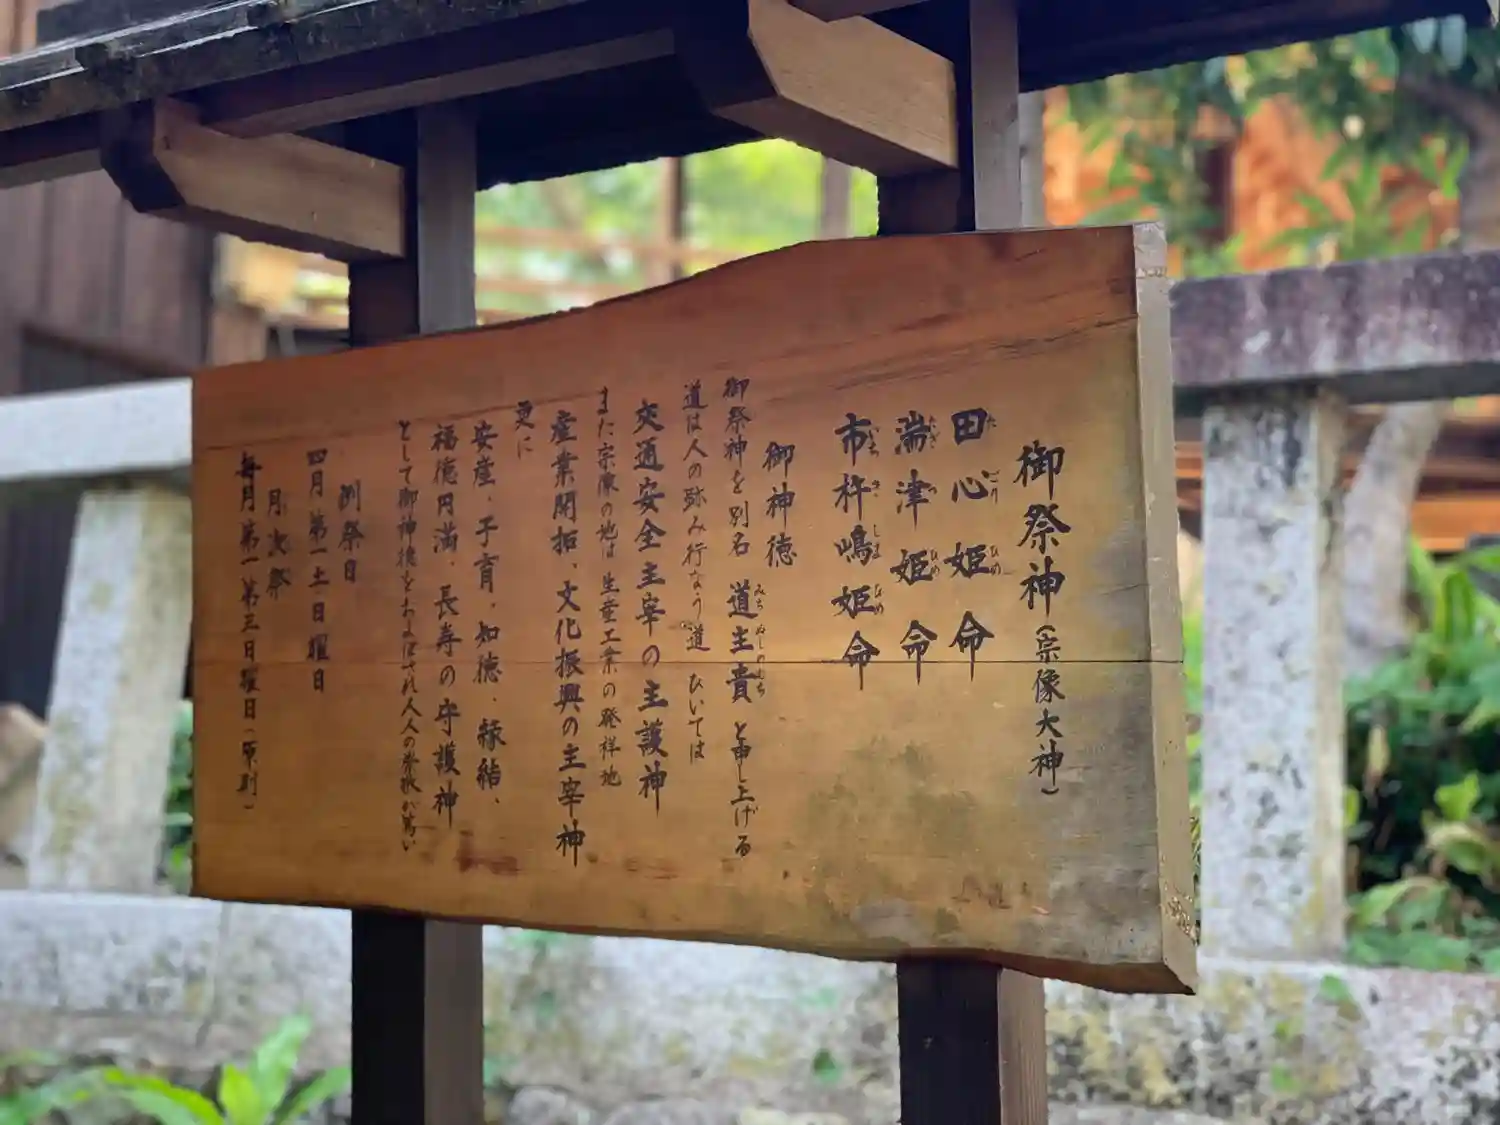 御祭神(宗像大神)
田心姫命
湍津姫命
市杵嶋姫命
御神徳
御祭神を別名 道主貴と申し上げる
道は人の弥み行なう道 ひいては
交通安全主宰の主護神
また宗像の地は 生産工業の発祥地
産業開拓、文化振興の主宰神
更に
安産、子育、知徳、縁結、
福徳円満、長寿の守護神
として御神徳をおよぼされ人人の崇敬が篤い
例祭日
四月第一土日曜日
月次祭
毎月第一第三日曜日(原則)